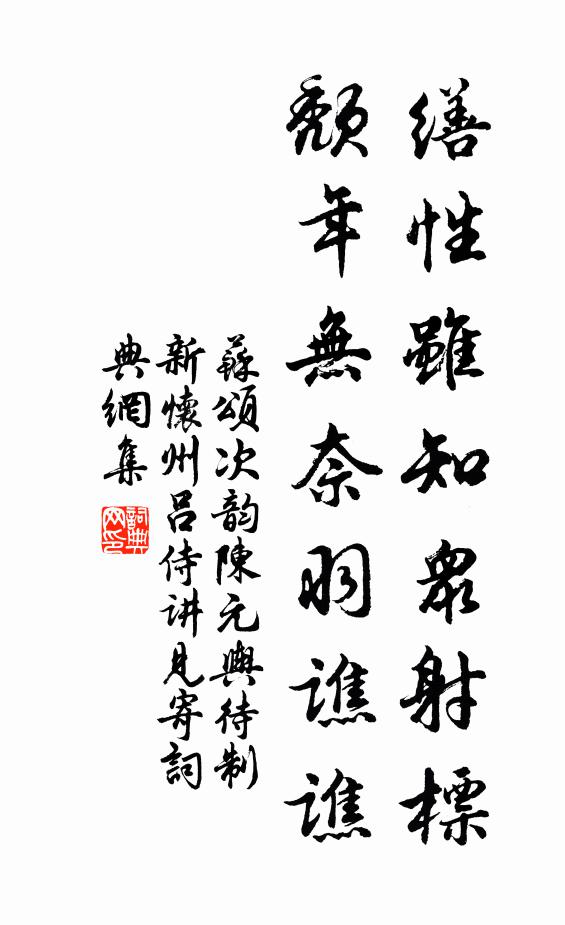 繕性雖知眾射標
頹年無奈羽譙譙
蘇頌次韵陳元輿待制
新懷州呂侍讲見寄詞
典網集
詞典
网印